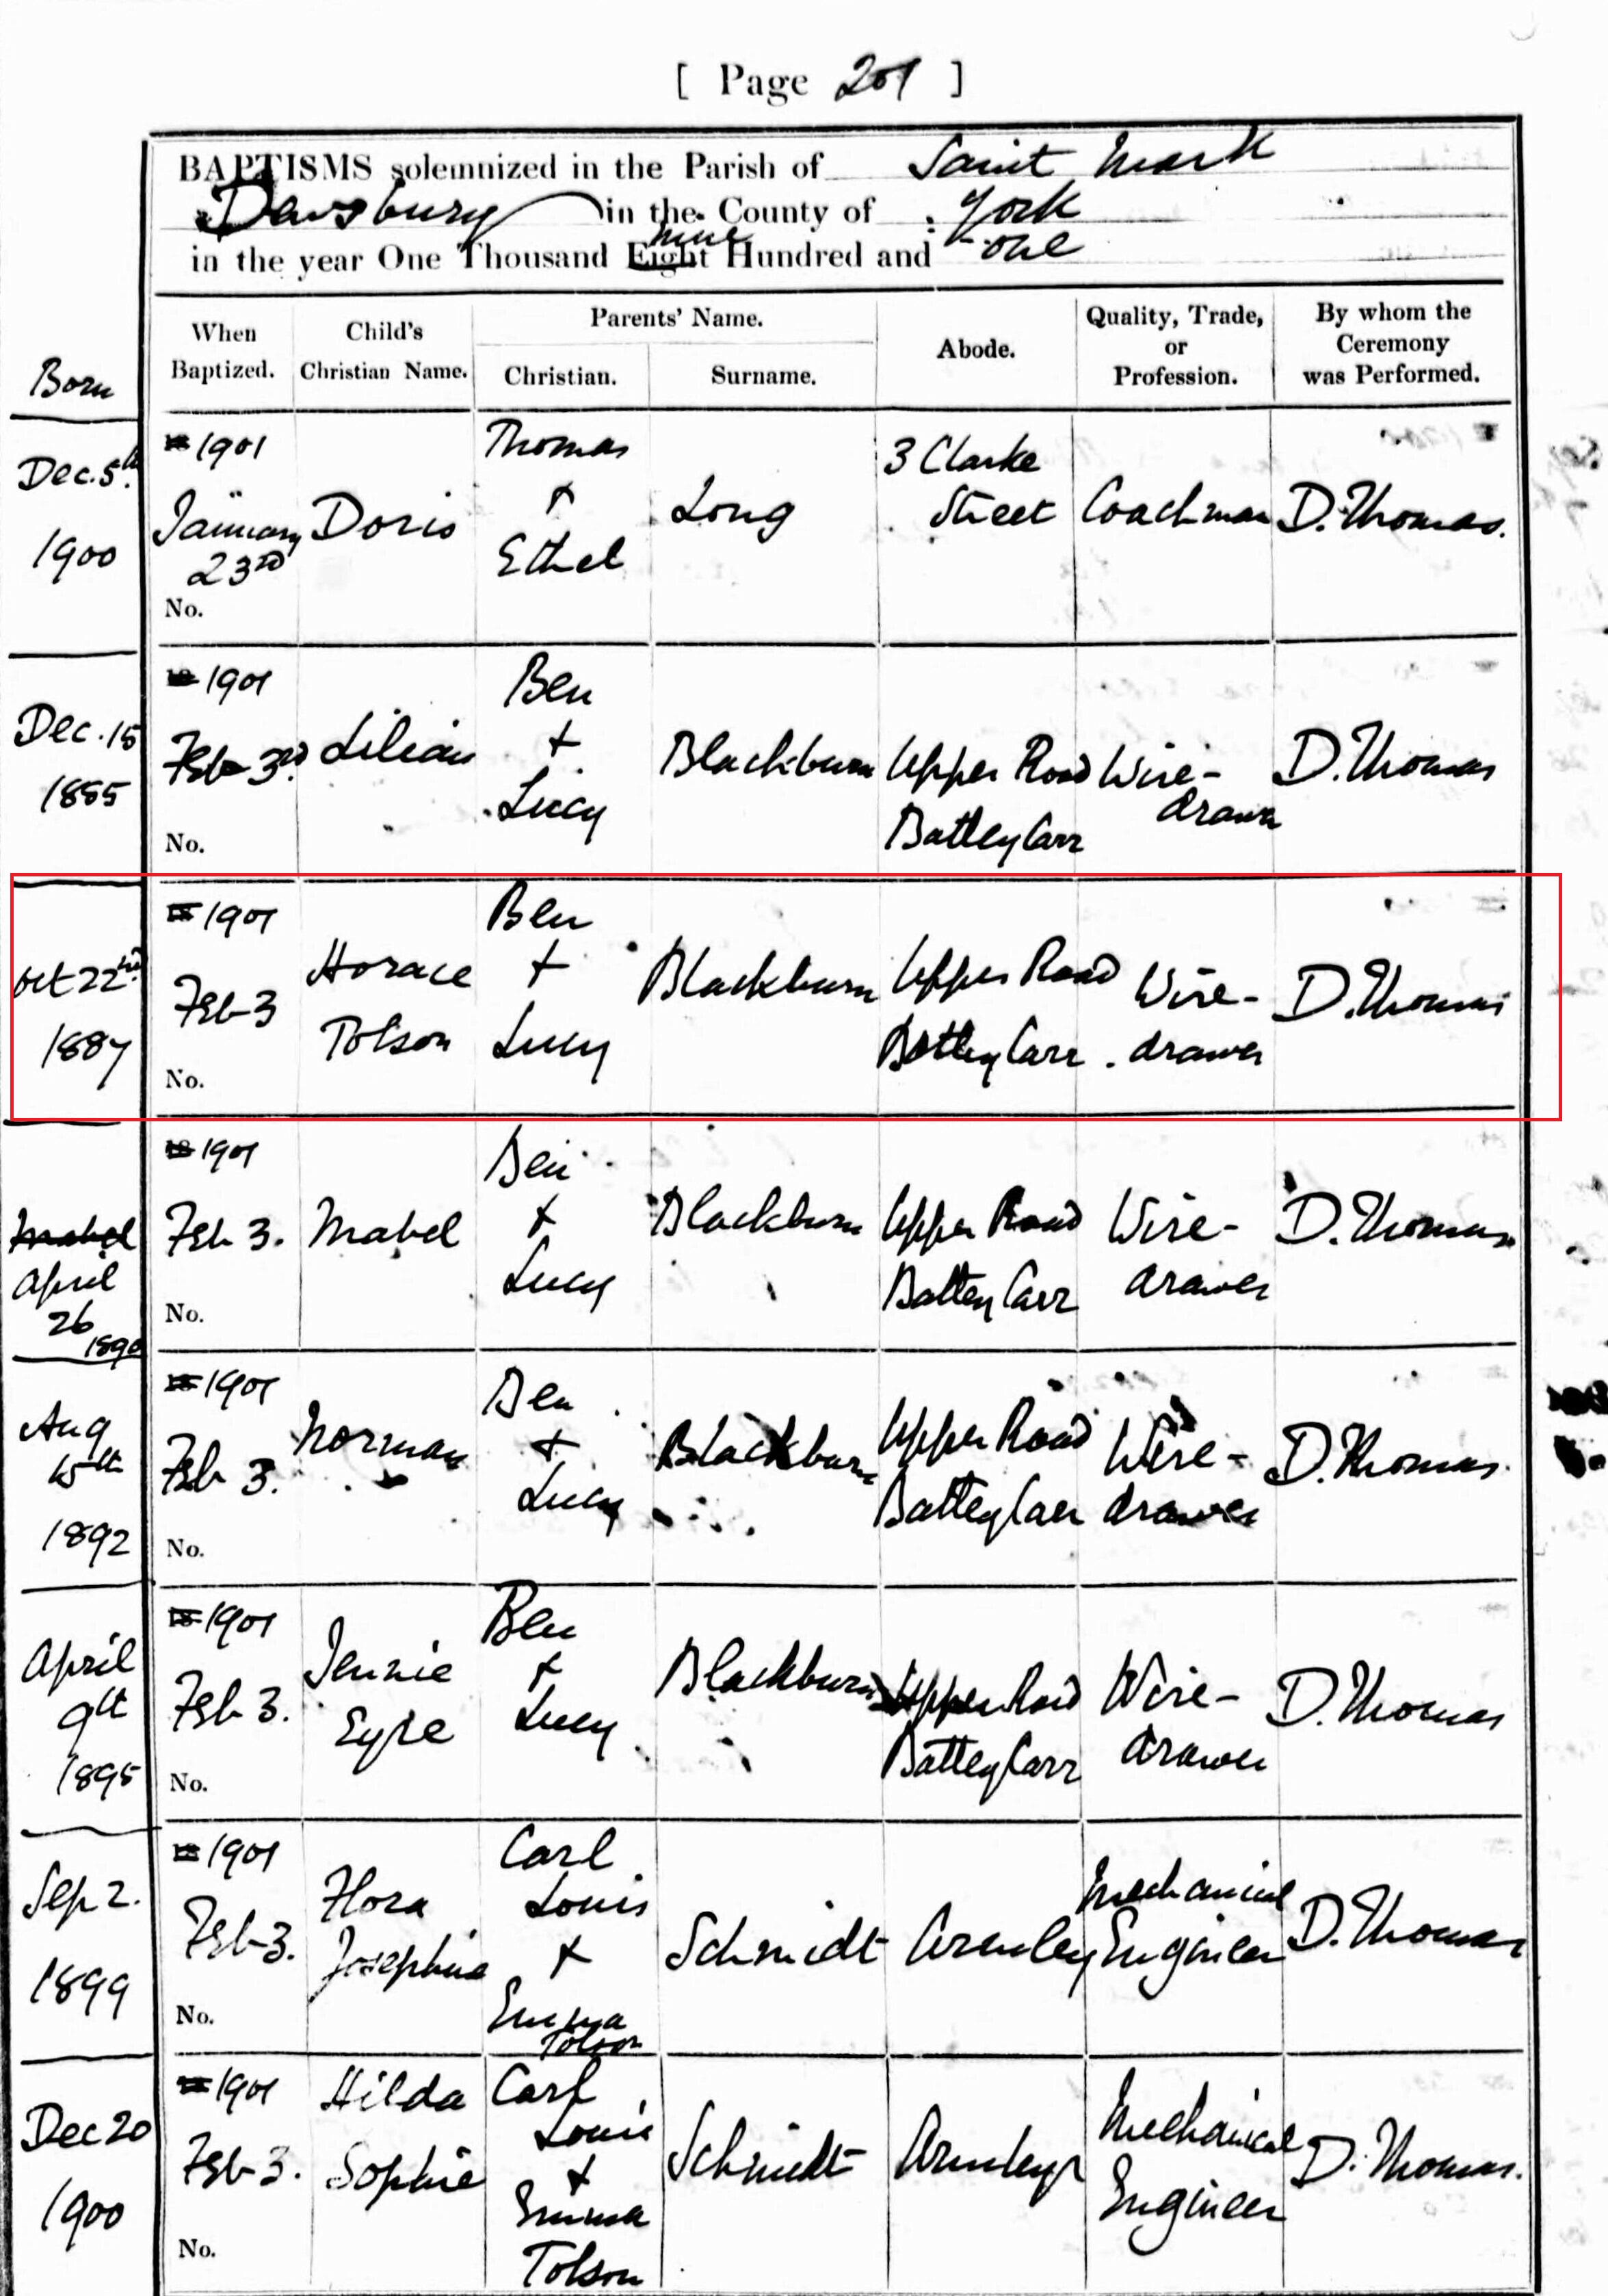 [ Page 201 ]
BAPTISMS solemnized in the Parish of Saint Mark
Dewsbury in the County of York
nine
in the year One Thousand Eight Hundred and one
Born
When Baptized.
Child's Christian Name.
Parents' Name.
Christian.
Surname.
Abode.
Quality, Trade, or Profession.
By whom the Ceremony was Performed.
Dec. 5th
1900
1901
January
23rd
No.
Doris
Thomas
+
Ethel
Long
3 Clarke
Street
Coachman
D. Thomas.
Dec. 15
1885
1901
Feb 3rd.
No.
Lilian
Ben
+
Lucy
Blackburn
Upper Road
Batley Carr
Wire-
drawer
D. Thomas
Oct 22nd
1887
18 1901
Feb 3
No.
Horace
Tolson
Ben
+
Lucy
Blackburn
Upper Road
Batley Carr
Wire-
drawer
D. Thomas
Mabel
April
26
1890
18 1901
Feb 3.
No.
Mabel
Ben
+
Lucy
Blackburn
Upper Road
Batley Carr
Wire-
drawer
D. Thomas
Aug
15th
1892
18 1901
Feb 3.
No.
Norman
Ben
+
Lucy
Blackburn
Upper Road
Batley Carr
Wire-
drawer
D. Thomas.
April
9th
1895
18 1901
Feb 3.
No.
Jennie
Eyre
Ben
+
Lucy
Blackburn
Upper Road
Batley Carr
Wire-
drawer
D. Thomas
Sep 2.
1899
18 1901
Feb 3.
No.
Flora
Josephine
Carl
Louis
+
Emma
Tolson
Schmidt
Armley
Mechanical
Engineer
D. Thomas
Dec 20
1900
1901
Feb 3.
No.
Hilda
Sophie
Carl
Louis
+
Emma
Tolson
Schmidt
Armley
Mechanical
Engineer
D. Thomas.